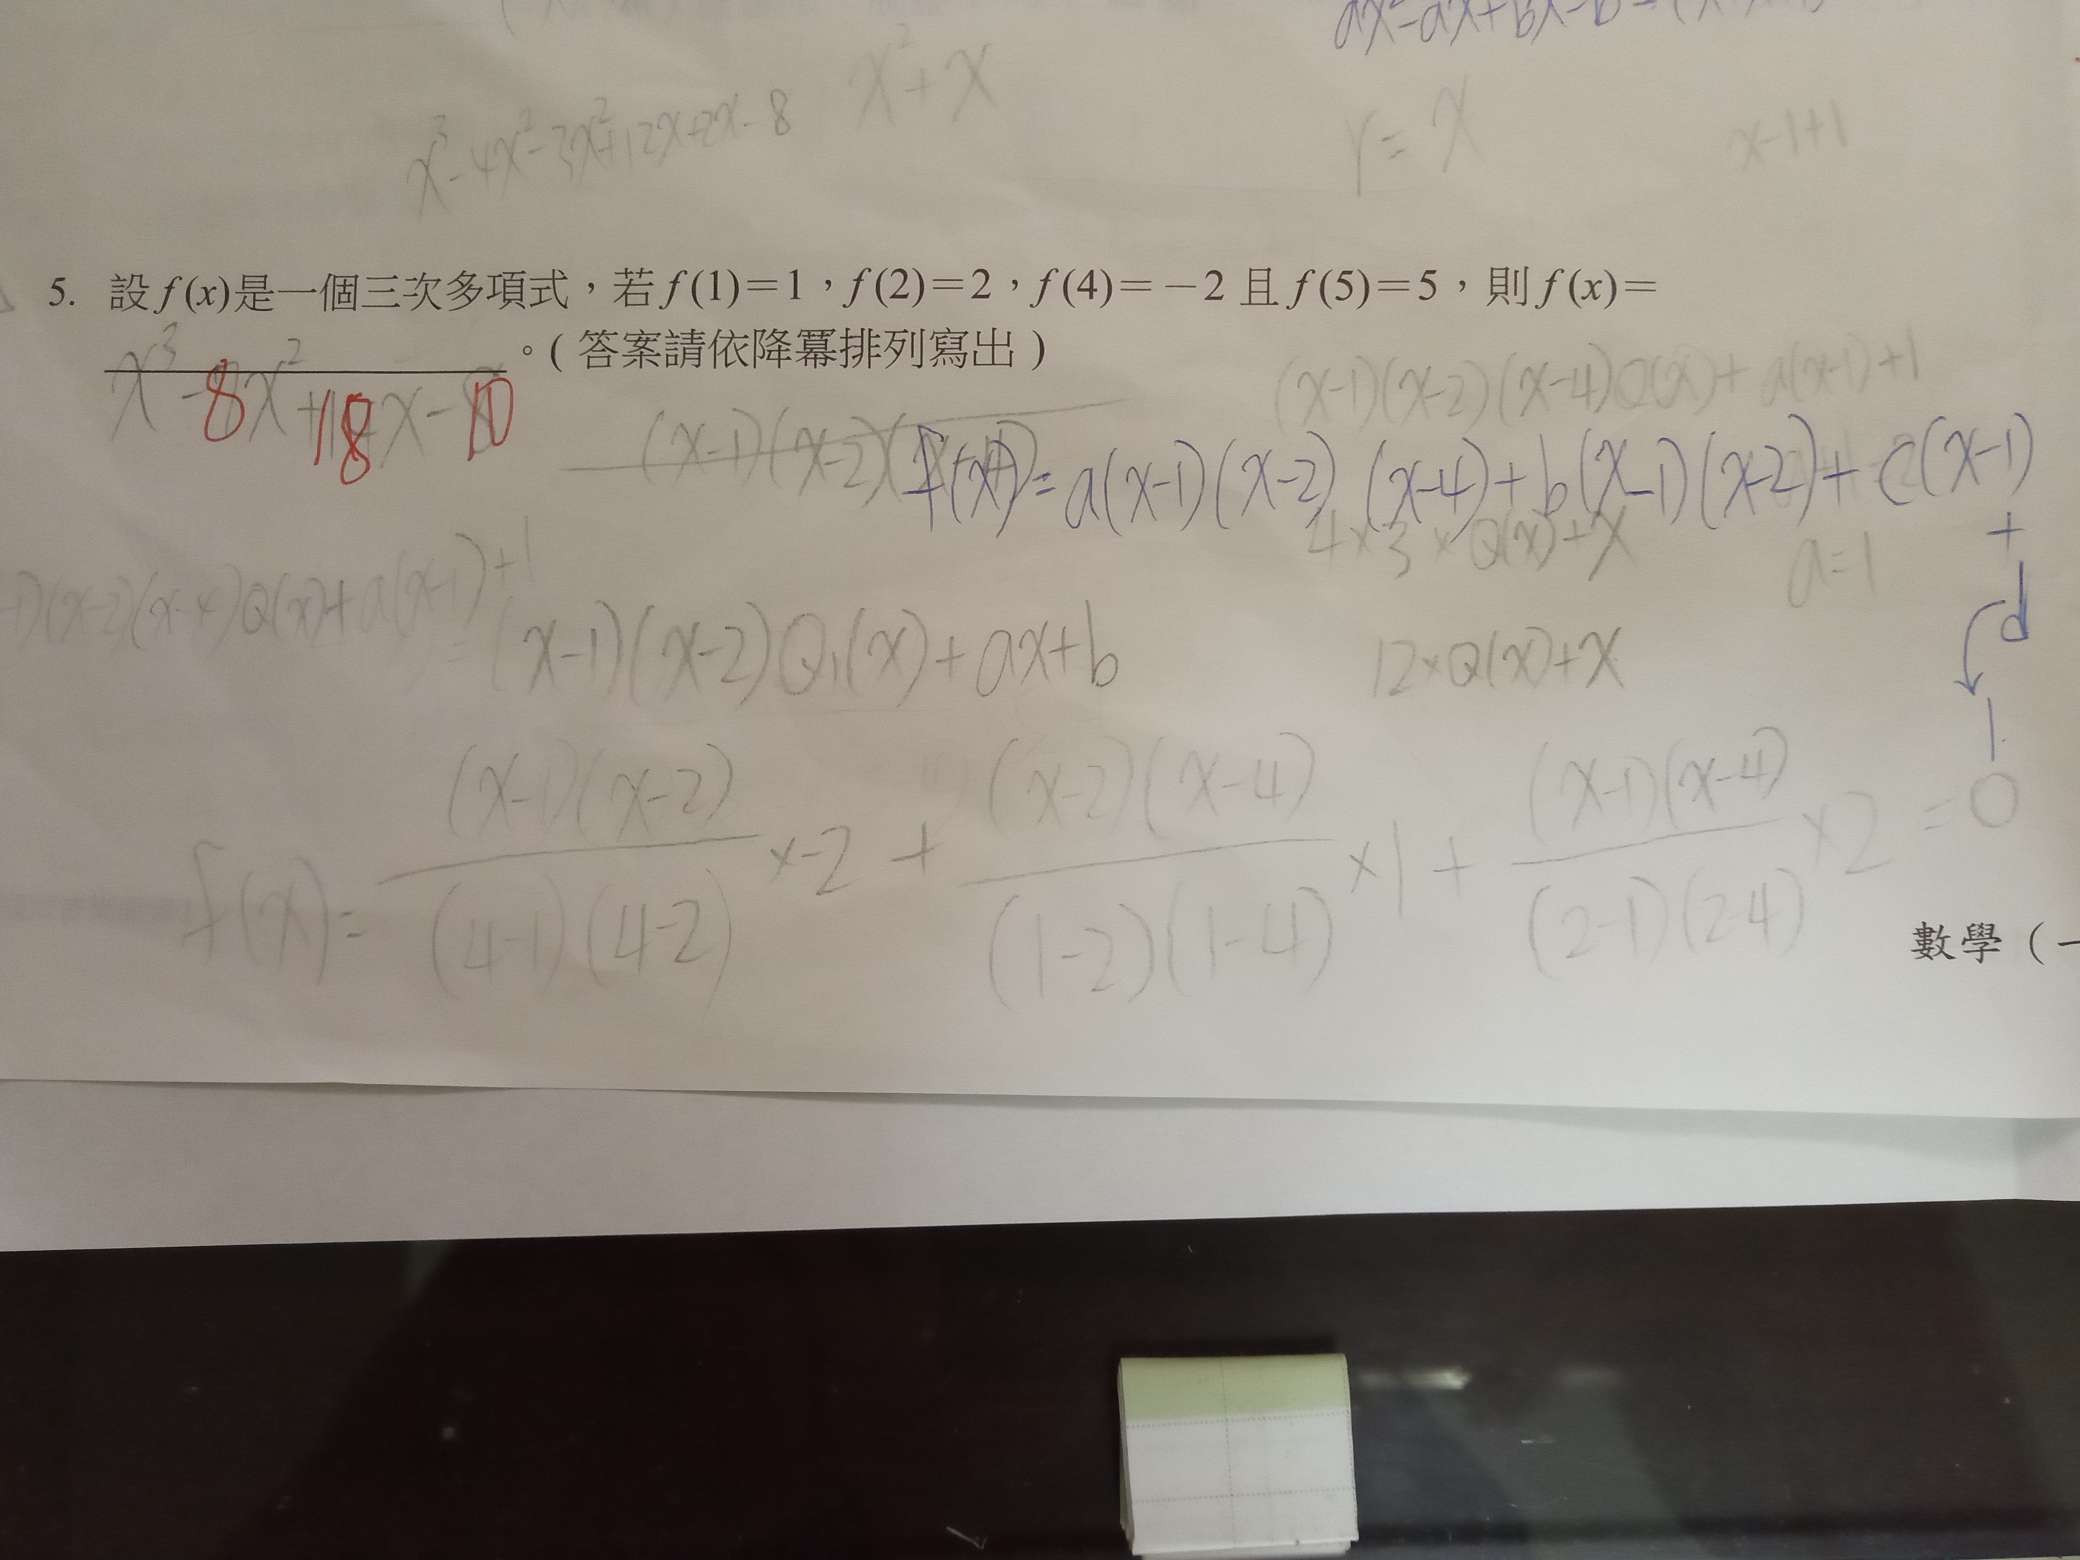 ax²-ax+bx-b=
x³-4x²-3x²+12x+2x-8
x²+x
r=x
x-1+1
5. 設 f(x)是一個三次多項式，若 f(1)=1，f(2)=2，f(4)=-2 且 f(5)=5，則 f(x)=
x³-8x²+18x-10 。( 答案請依降冪排列寫出 )
(x-1)(x-2)(x-4)Q(x)+a(x-1)+1
(x-1)(x-2)(
f(x)=a(x-1)(x-2)(x-4)+b(x-1)(x-2)+c(x-1)
+
d
4×3×Q(x)+x
a=1
-1)(x-2)(x-4)Q(x)+a(x-1)+1
=(x-1)(x-2)Q₁(x)+ax+b
12×Q(x)+x
1
f(x)= (x-1)(x-2)/(4-1)(4-2) ×-2 + (x-2)(x-4)/(1-2)(1-4) ×1 + (x-1)(x-4)/(2-1)(2-4) ×2 =0
數學（一